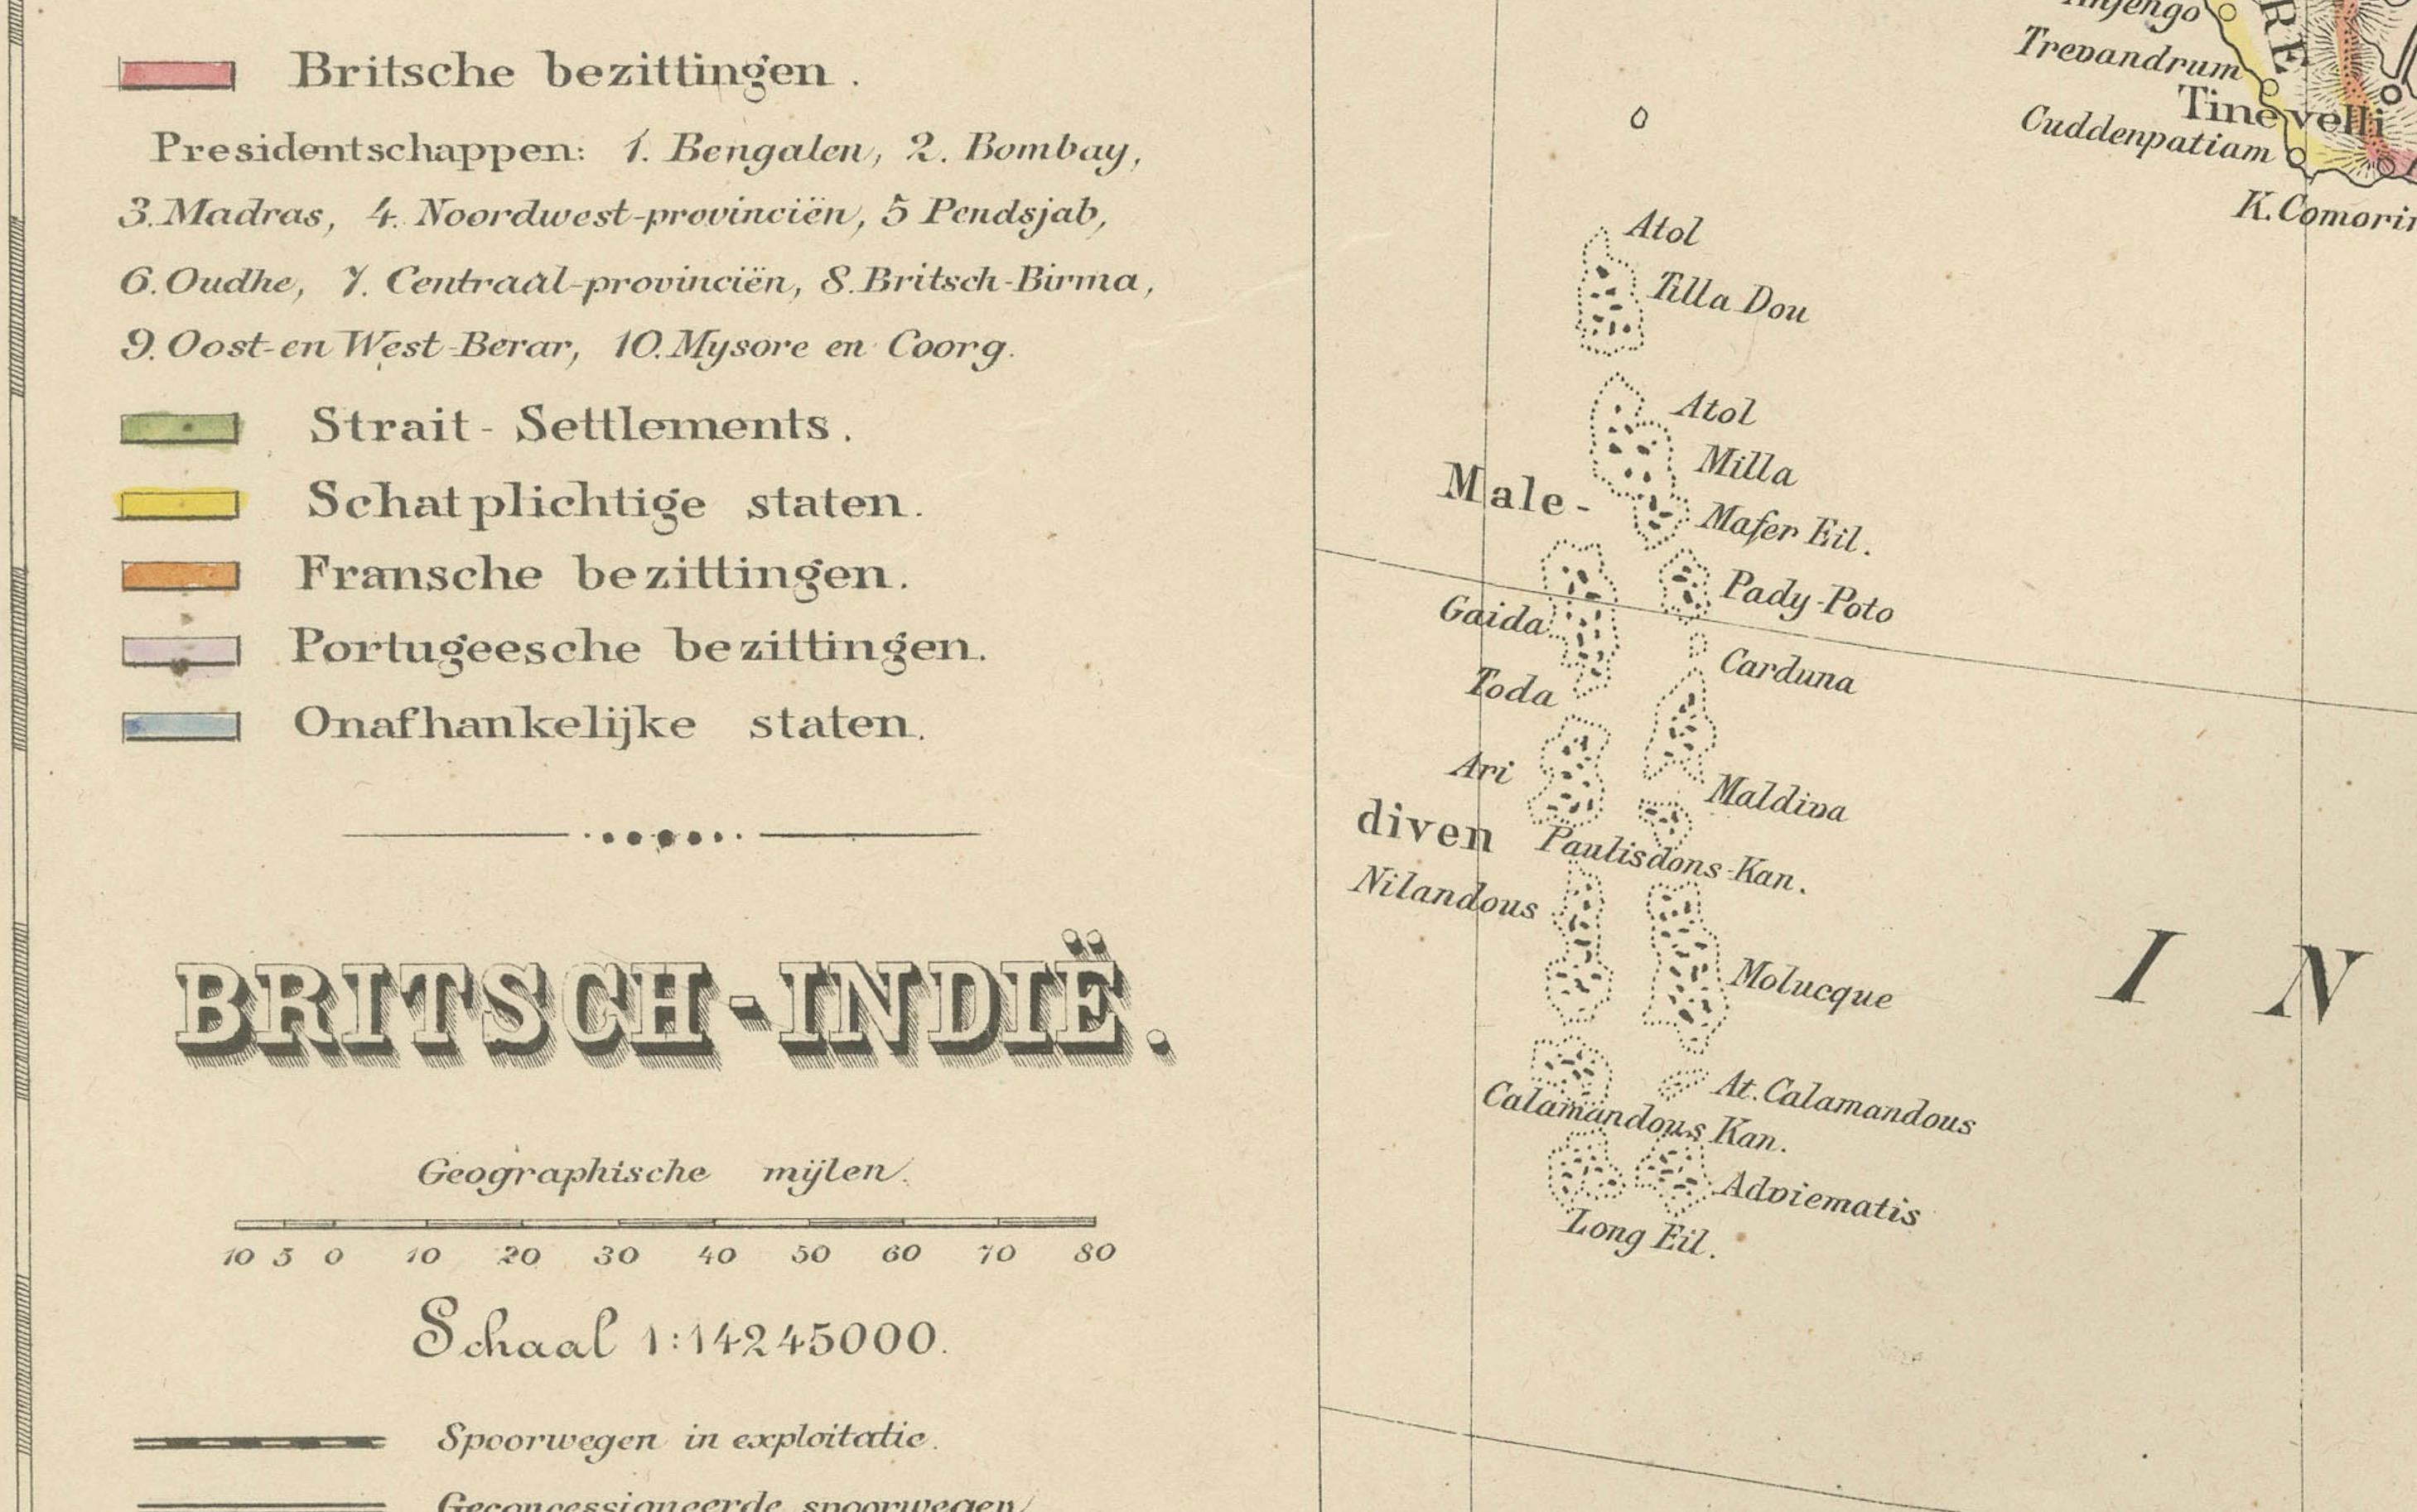 Britsche bezittingen.
Presidentschappen: 1. Bengalen, 2. Bombay,
3. Madras, 4. Noordwest-provinciën, 5 Pendsjab,
6. Oudhe, 7. Centraal-provinciën, 8. Britsch-Birma,
9. Oost-en West-Berar, 10. Mysore en Coorg.
Strait-Settlements.
Schatplichtige staten.
Fransche bezittingen.
Portugeesche bezittingen.
Onafhankelijke staten.
BRITSCH-INDIË.
Geographische mijlen.
10 5 0 10 20 30 40 50 60 70 80
Schaal 1:14245000.
Spoorwegen in exploitatie.
Geconcessioneerde spoorwegen
Trevandrum
Tinevelli
Cuddenpatiam
K. Comorin
Atol
Tilla Dou
Atol
Milla
Male-
Mafer Eil.
Pady-Poto
Gaida
Carduna
Toda
Ari
Maldiva
diven
Paulisdons-Kan.
Nilandous
Molucque
At. Calamandous
Calamandous Kan.
Adviematis
Long Eil.
I N